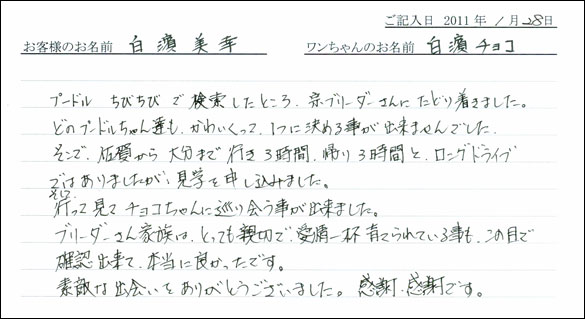 ご記入日 2011年 1月 28日
お客様のお名前 白濵 美幸 ワンちゃんのお名前 白濵 チョコ
プードル ちびちび で 検索したところ、宗ブリーダーさんに たどり着きました。
どのプードルちゃん達も、かわいくって、1つに決める事が出来ませんでした。
そこで、佐賀から 大分まで 行き 3時間、帰り 3時間と、ロングドライブ
ではありましたが、見学を申し込みました。
そして
行って見て チョコちゃんに 巡り会う事が出来ました。
ブリーダーさん家族は、とっても親切で、愛情一杯 育てられている事も、この目で
確認出来て、本当に良かったです。
素敵な出会いを ありがとうございました。 感謝、感謝です。